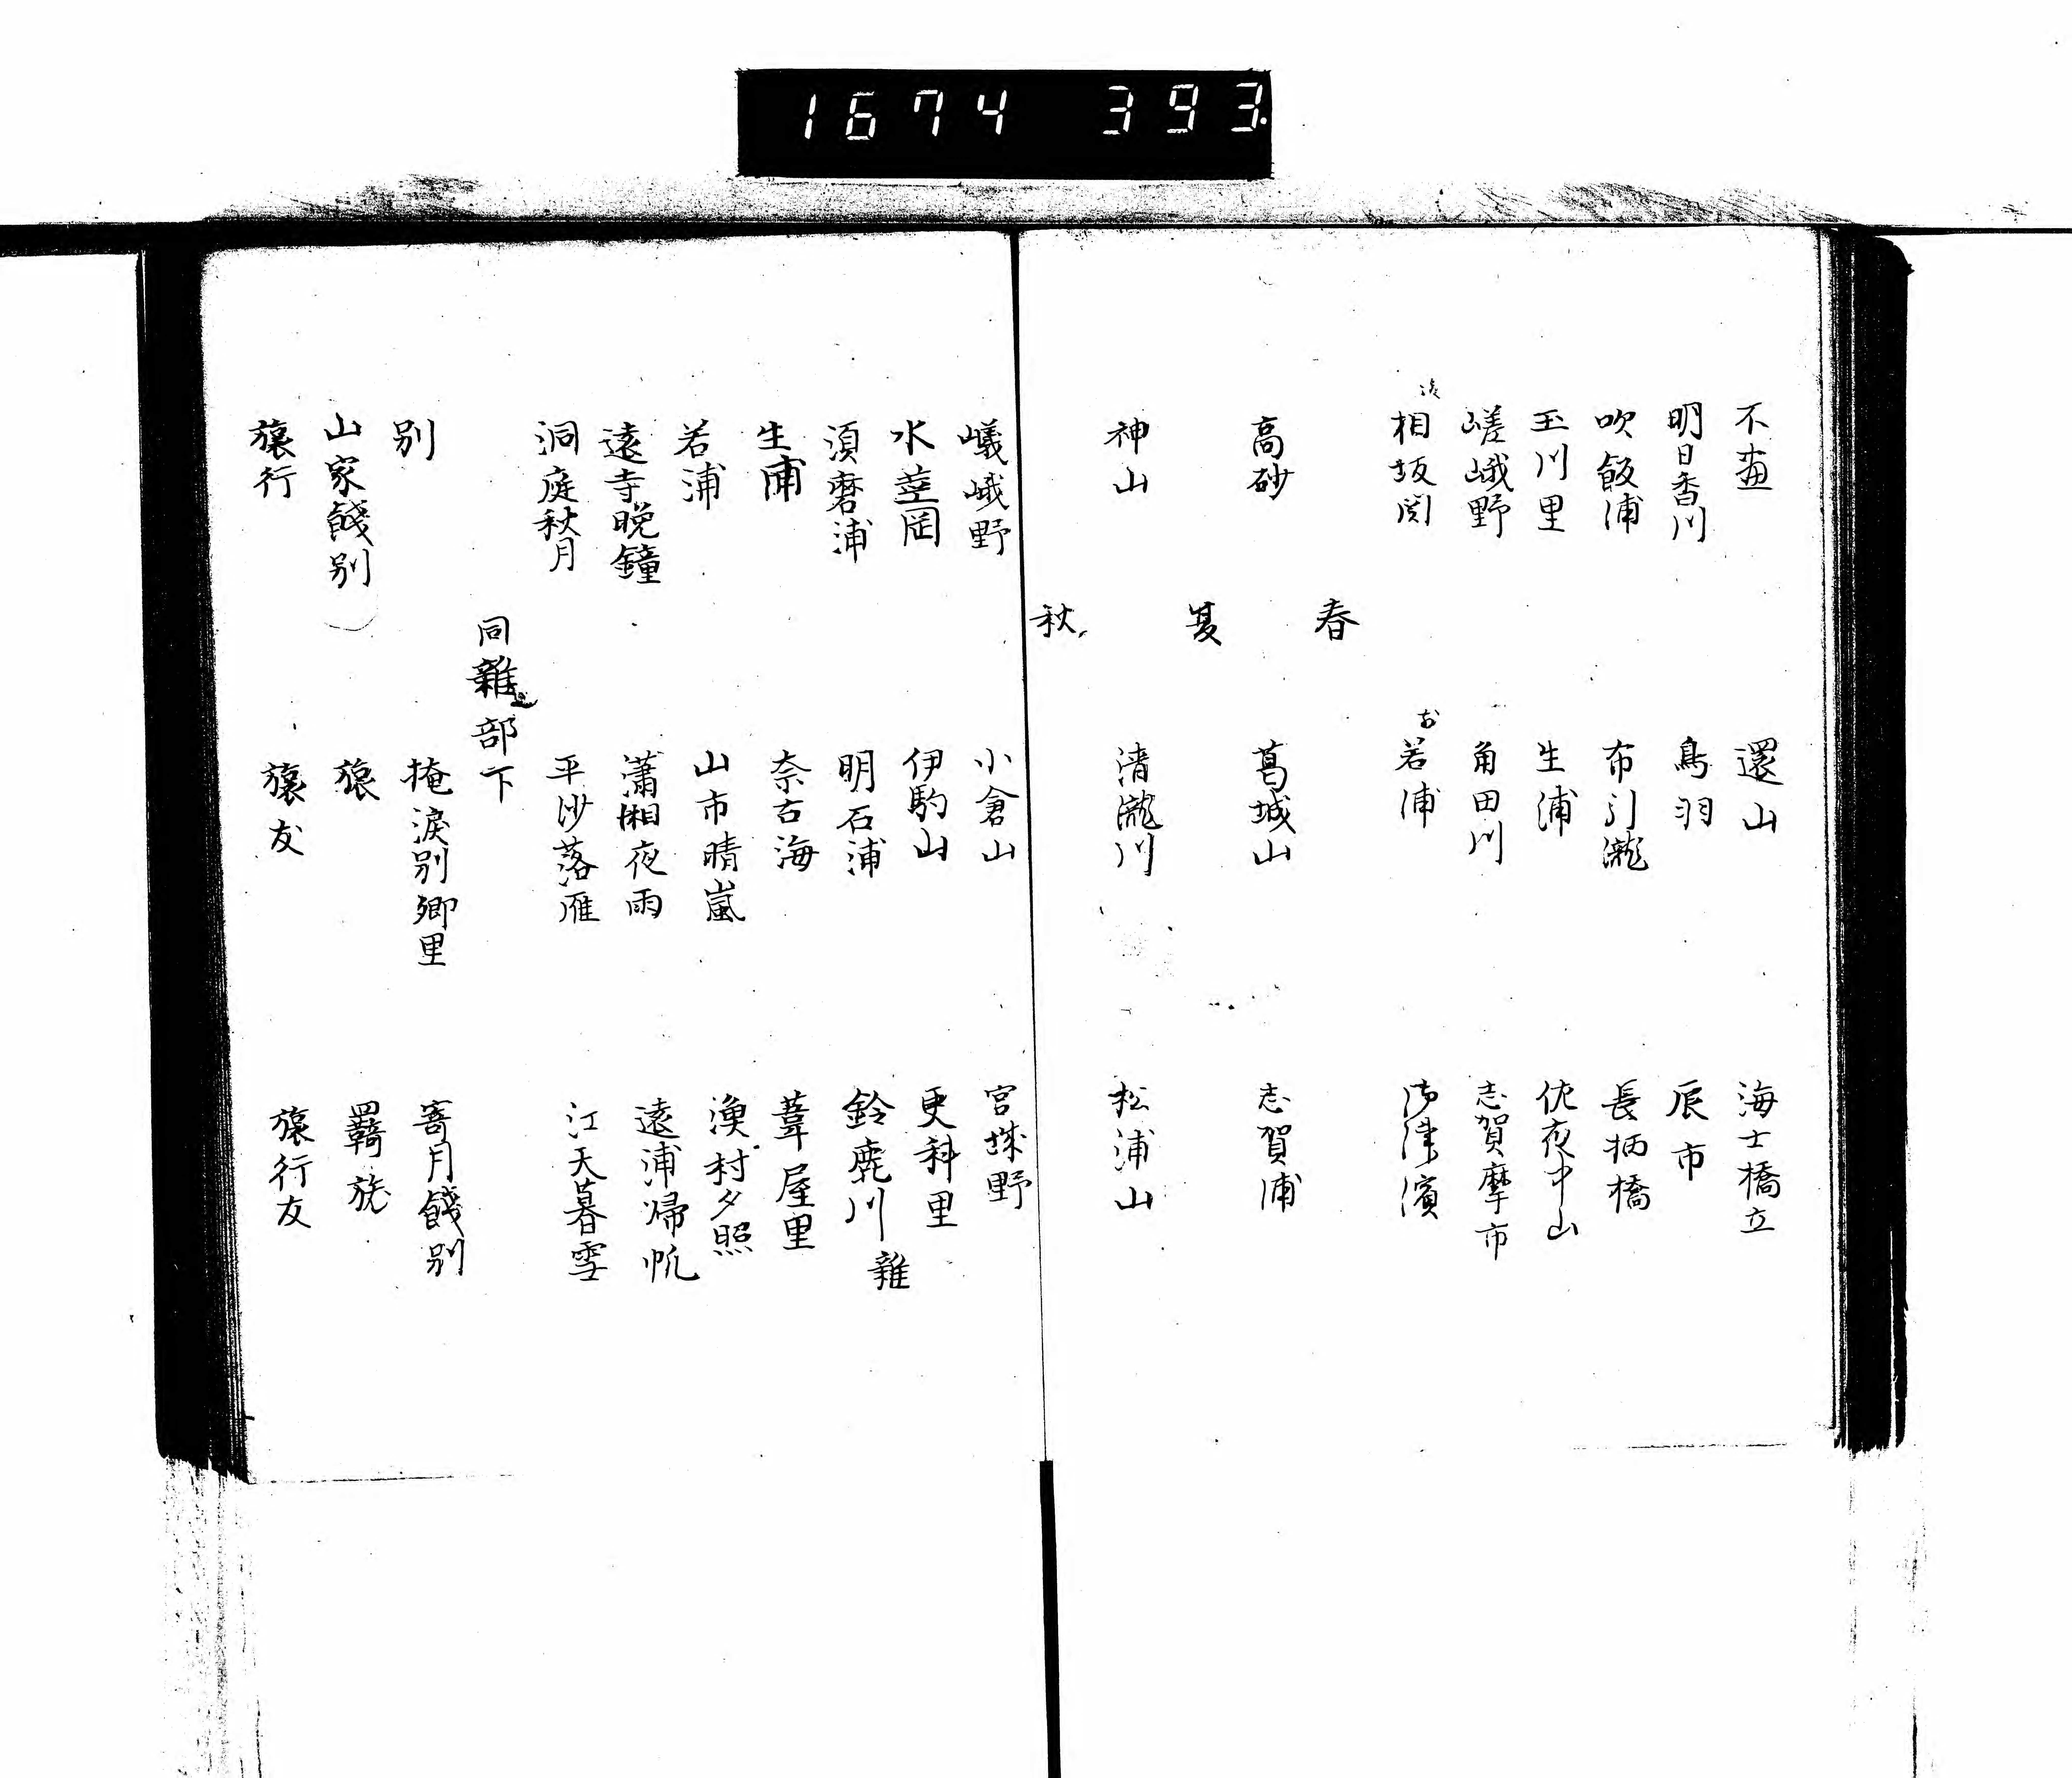 1674 393.
不尽 還山 海士橋立
明日香川 鳥羽 辰市
吹飯浦 布引瀧 長柄橋
玉川里 生浦 佐夜中山
嵯峨野 角田川 志賀摩市
相坂関 若浦 御津濱
春
高砂 葛城山 志賀浦
夏
神山 清瀧川 松浦山
秋
嵯峨野 小倉山 宮城野
水茎岡 伊駒山 更科里
雜
須磨浦 明石浦 鈴鹿川
生浦 奈古海 葦屋里
若浦 山市晴嵐 漁村夕照
遠寺晩鐘 瀟湘夜雨 遠浦帰帆
洞庭秋月 平沙落雁 江天暮雪
同雜部下
別 掩涙別郷里 寄月餞別
山家餞別 旅 羇旅
旅行 旅友 旅行友